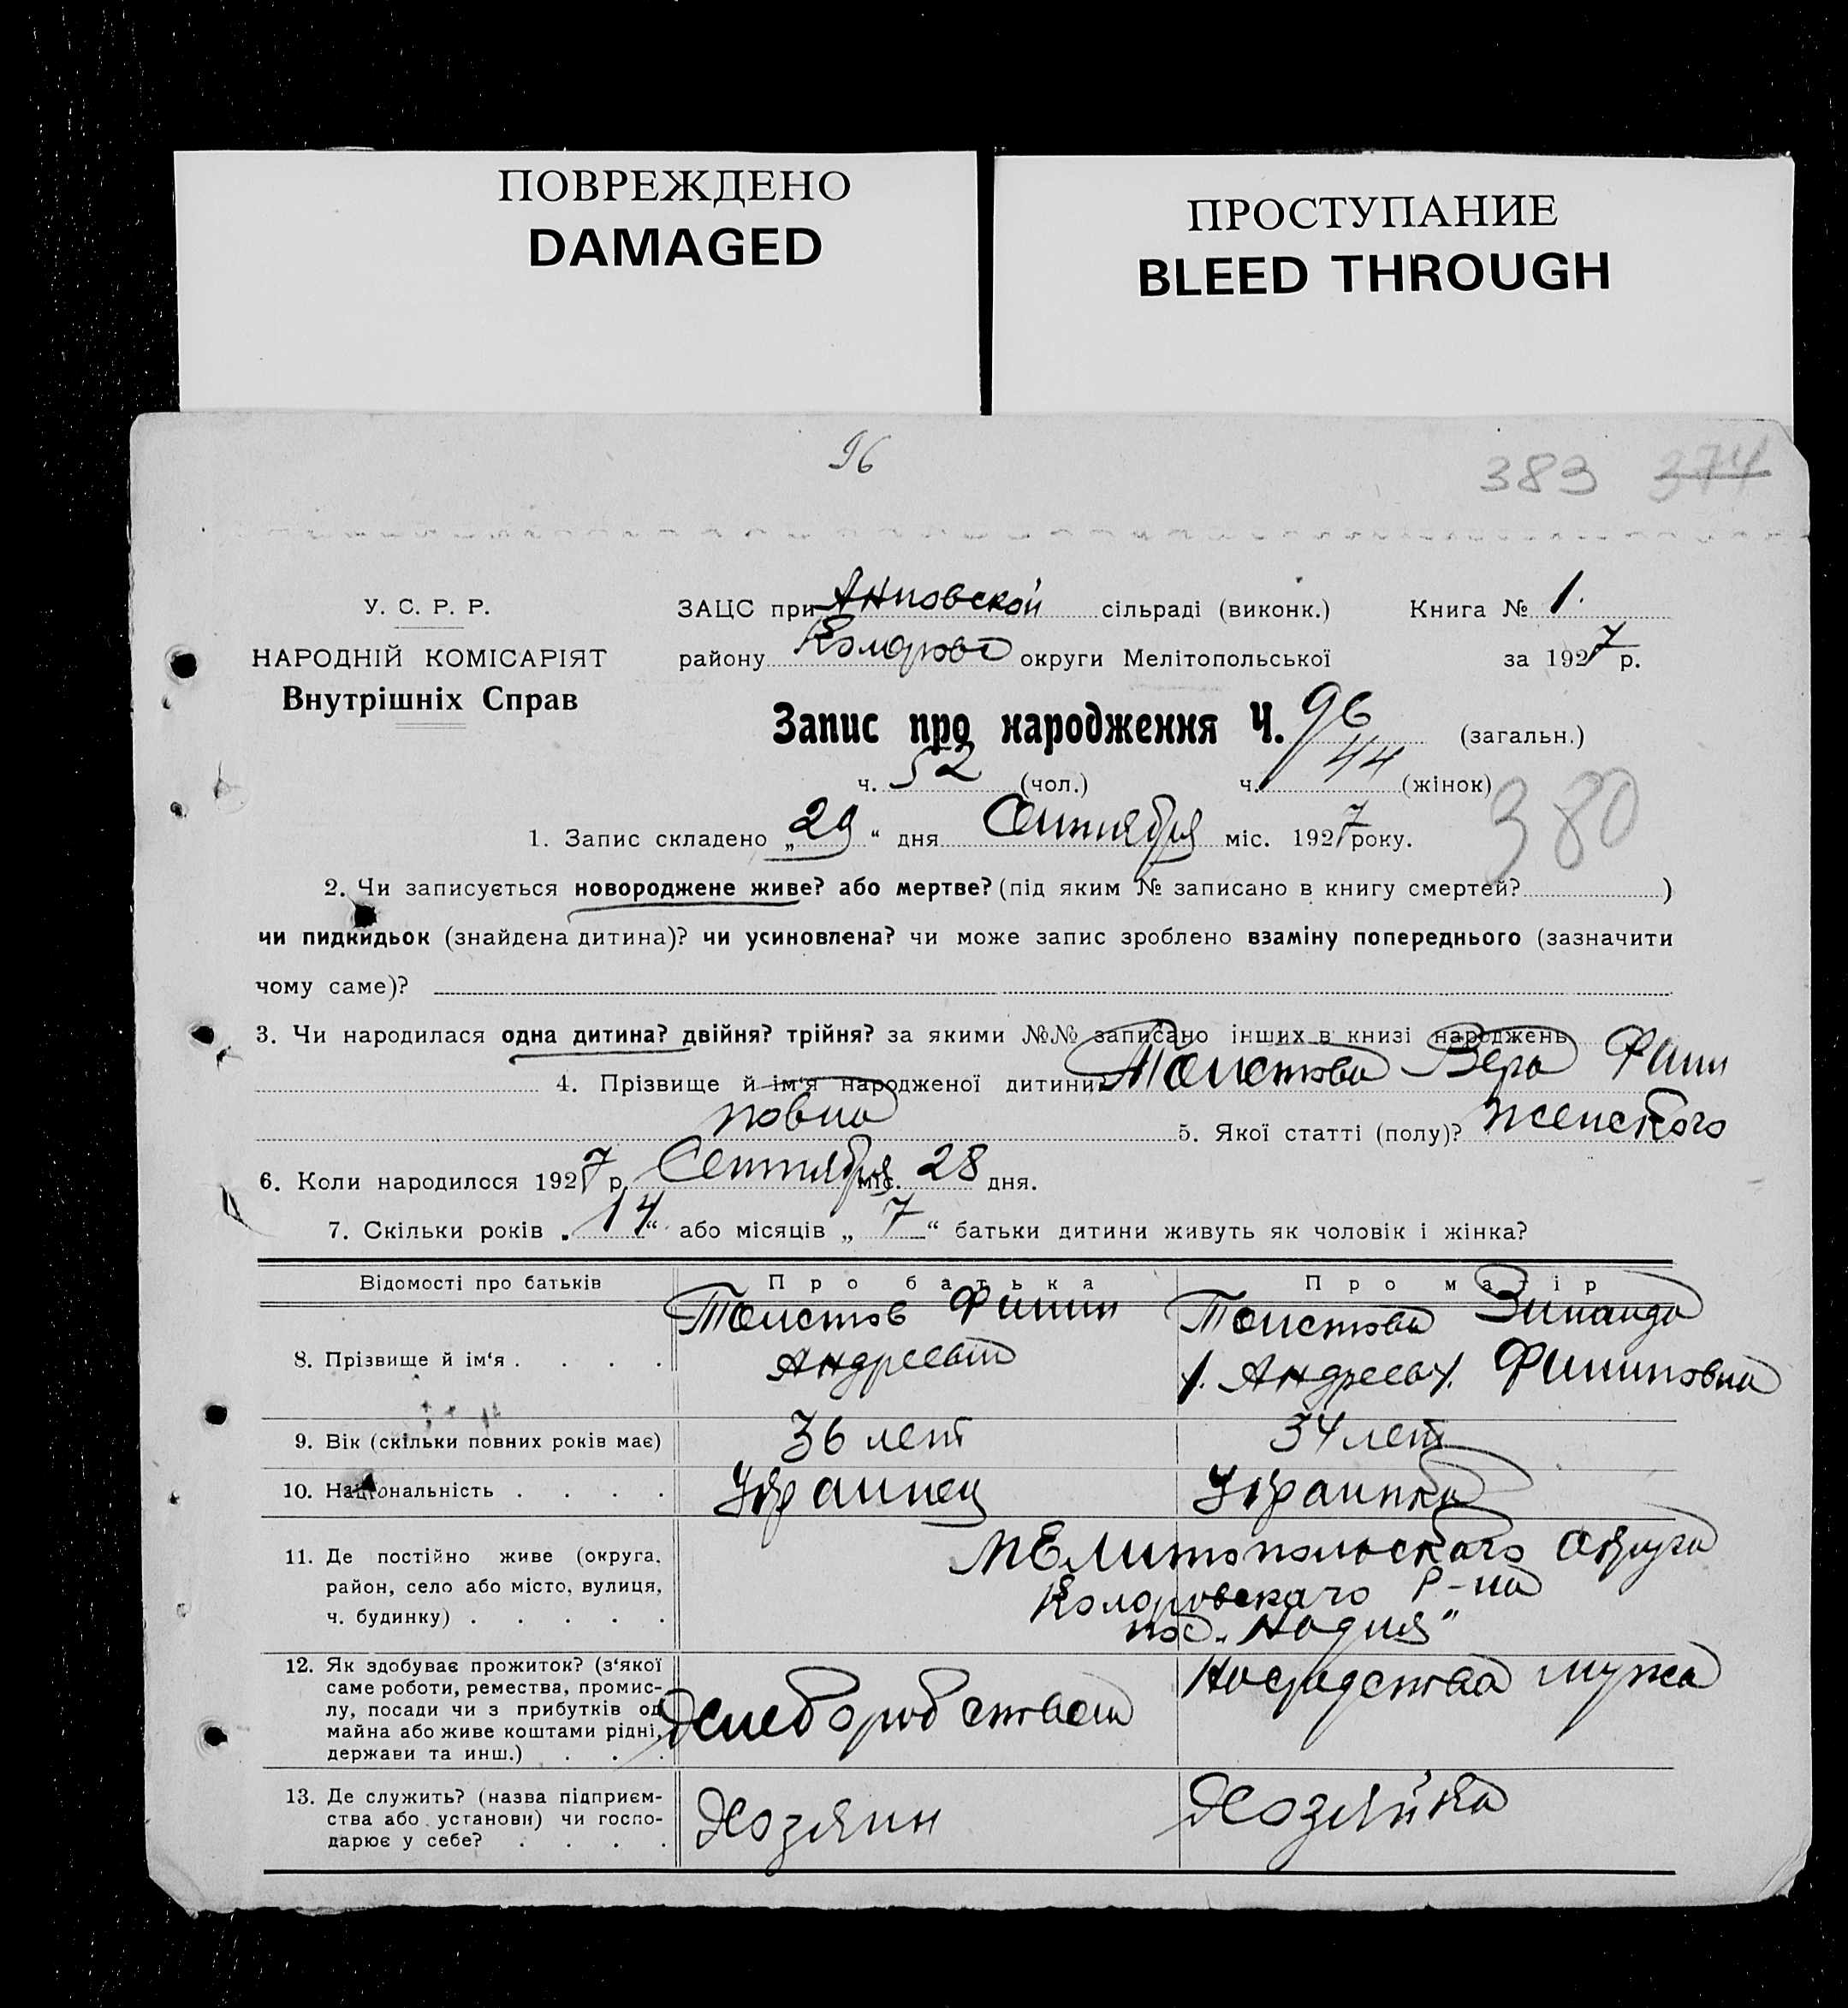 ПОВРЕЖДЕНО
DAMAGED
ПРОСТУПАНИЕ
BLEED THROUGH
96
383 374
У. С. Р. Р.
НАРОДНІЙ КОМІСАРІЯТ
Внутрішніх Справ
ЗАЦС при Анновской сільраді (виконк.) Книга № 1.
району округи Мелітопольської за 1927 р.
Запис про народження Ч. 96 (загальн.)
ч. 52 (чол.) ч. 44 (жінок)
380
1. Запис складено „29“ дня Сентября міс. 1927 року.
2. Чи записується новороджене живе? або мертве? (під яким № записано в книгу смертей? )
чи пидкидьок (знайдена дитина)? чи усиновлена? чи може запис зроблено взаміну попереднього (зазначити
чому саме)?
3. Чи народилася одна дитина? двійня? трійня? за якими №№ записано інших в книзі народжень
4. Прізвище й ім‘я народженої дитини? Толстова Вера Фили
повна 5. Якої статті (полу)? женского
6. Коли народилося 1927 р. Сентября міс. 28 дня.
7. Скільки років „14“ або місяців „7“ батьки дитини живуть як чоловік і жінка?
Відомості про батьків Про батька Про матір
8. Прізвище й ім‘я . . . .
Толстов Филип
Андреевич
Толстова Зинаида
Филиповна
9. Вік (скільки повних років має) 36 лет 34 лет
10. Національність . . . . Украинец Украинка
11. Де постійно живе (округа,
район, село або місто, вулиця,
ч. будинку) . . . . .
Мелитопольского округа
Р-на
пос. „Надия“
12. Як здобуває прожиток? (з‘якої
саме роботи, ремества, промис-
лу, посади чи з прибутків од
майна або живе коштами рідні,
держави та инш.) . . .
Хлеборобством
На средства мужа
13. Де служить? (назва підприєм-
ства або установи) чи госпо-
дарює у себе? . . . .
Хозяин
Хозяйка